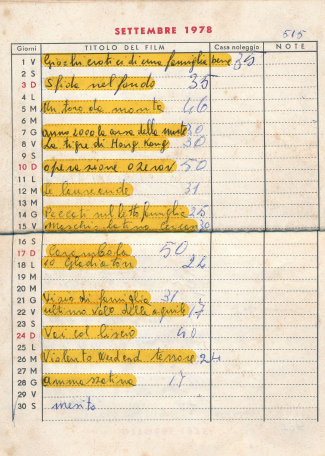 SETTEMBRE 1978
515
Giorni TITOLO DEL FILM Casa noleggio NOTE
1 V Giochi erotici di una famiglia bene 35
2 S
3 D Sfida nel fondo 35
4 L
5 M Un toro da monta 46
6 M
7 G anno 2000 la corsa della morte 30
8 V La tigre di Hong Kong 30
9 S
10 D operazione ozerov 50
11 L
12 M Le laureande 31
13 M
14 G Peccati sul letto famiglia 25
15 V Maschio latino cercasi 30
16 S
17 D Carambola 50
18 L 10 Gladiatori 24
19 M
20 M
21 G Vizio di famiglia 31
22 V ultimo volo delle aquile 17
23 S
24 D Vai col liscio 40
25 L
26 M Violento Weekend terrore 24
27 M
28 G ammazzatina 17
29 V
30 S